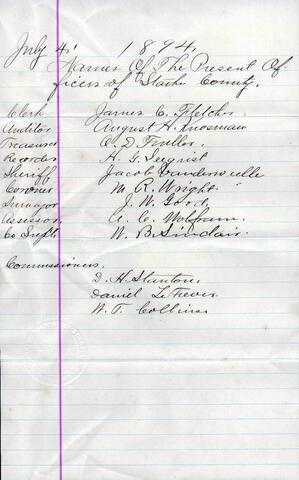 July 4, 1894.
Names Of The Present Of
ficers of Starke County.
Clerk James C. Fletcher
Auditor August H. Knosman
Treasurer O. D. Fuller
Recorder H. G. Siegrist
Sheriff Jacob Vanderweele
Coroner M. R. Wright
Surveyor J. W. Good.
Assessor A. C. Wolfram.
Co Supt W. B. Sinclair.
Commissioners.
D. H. Stanton
Daniel LeFever
W. T. Collins